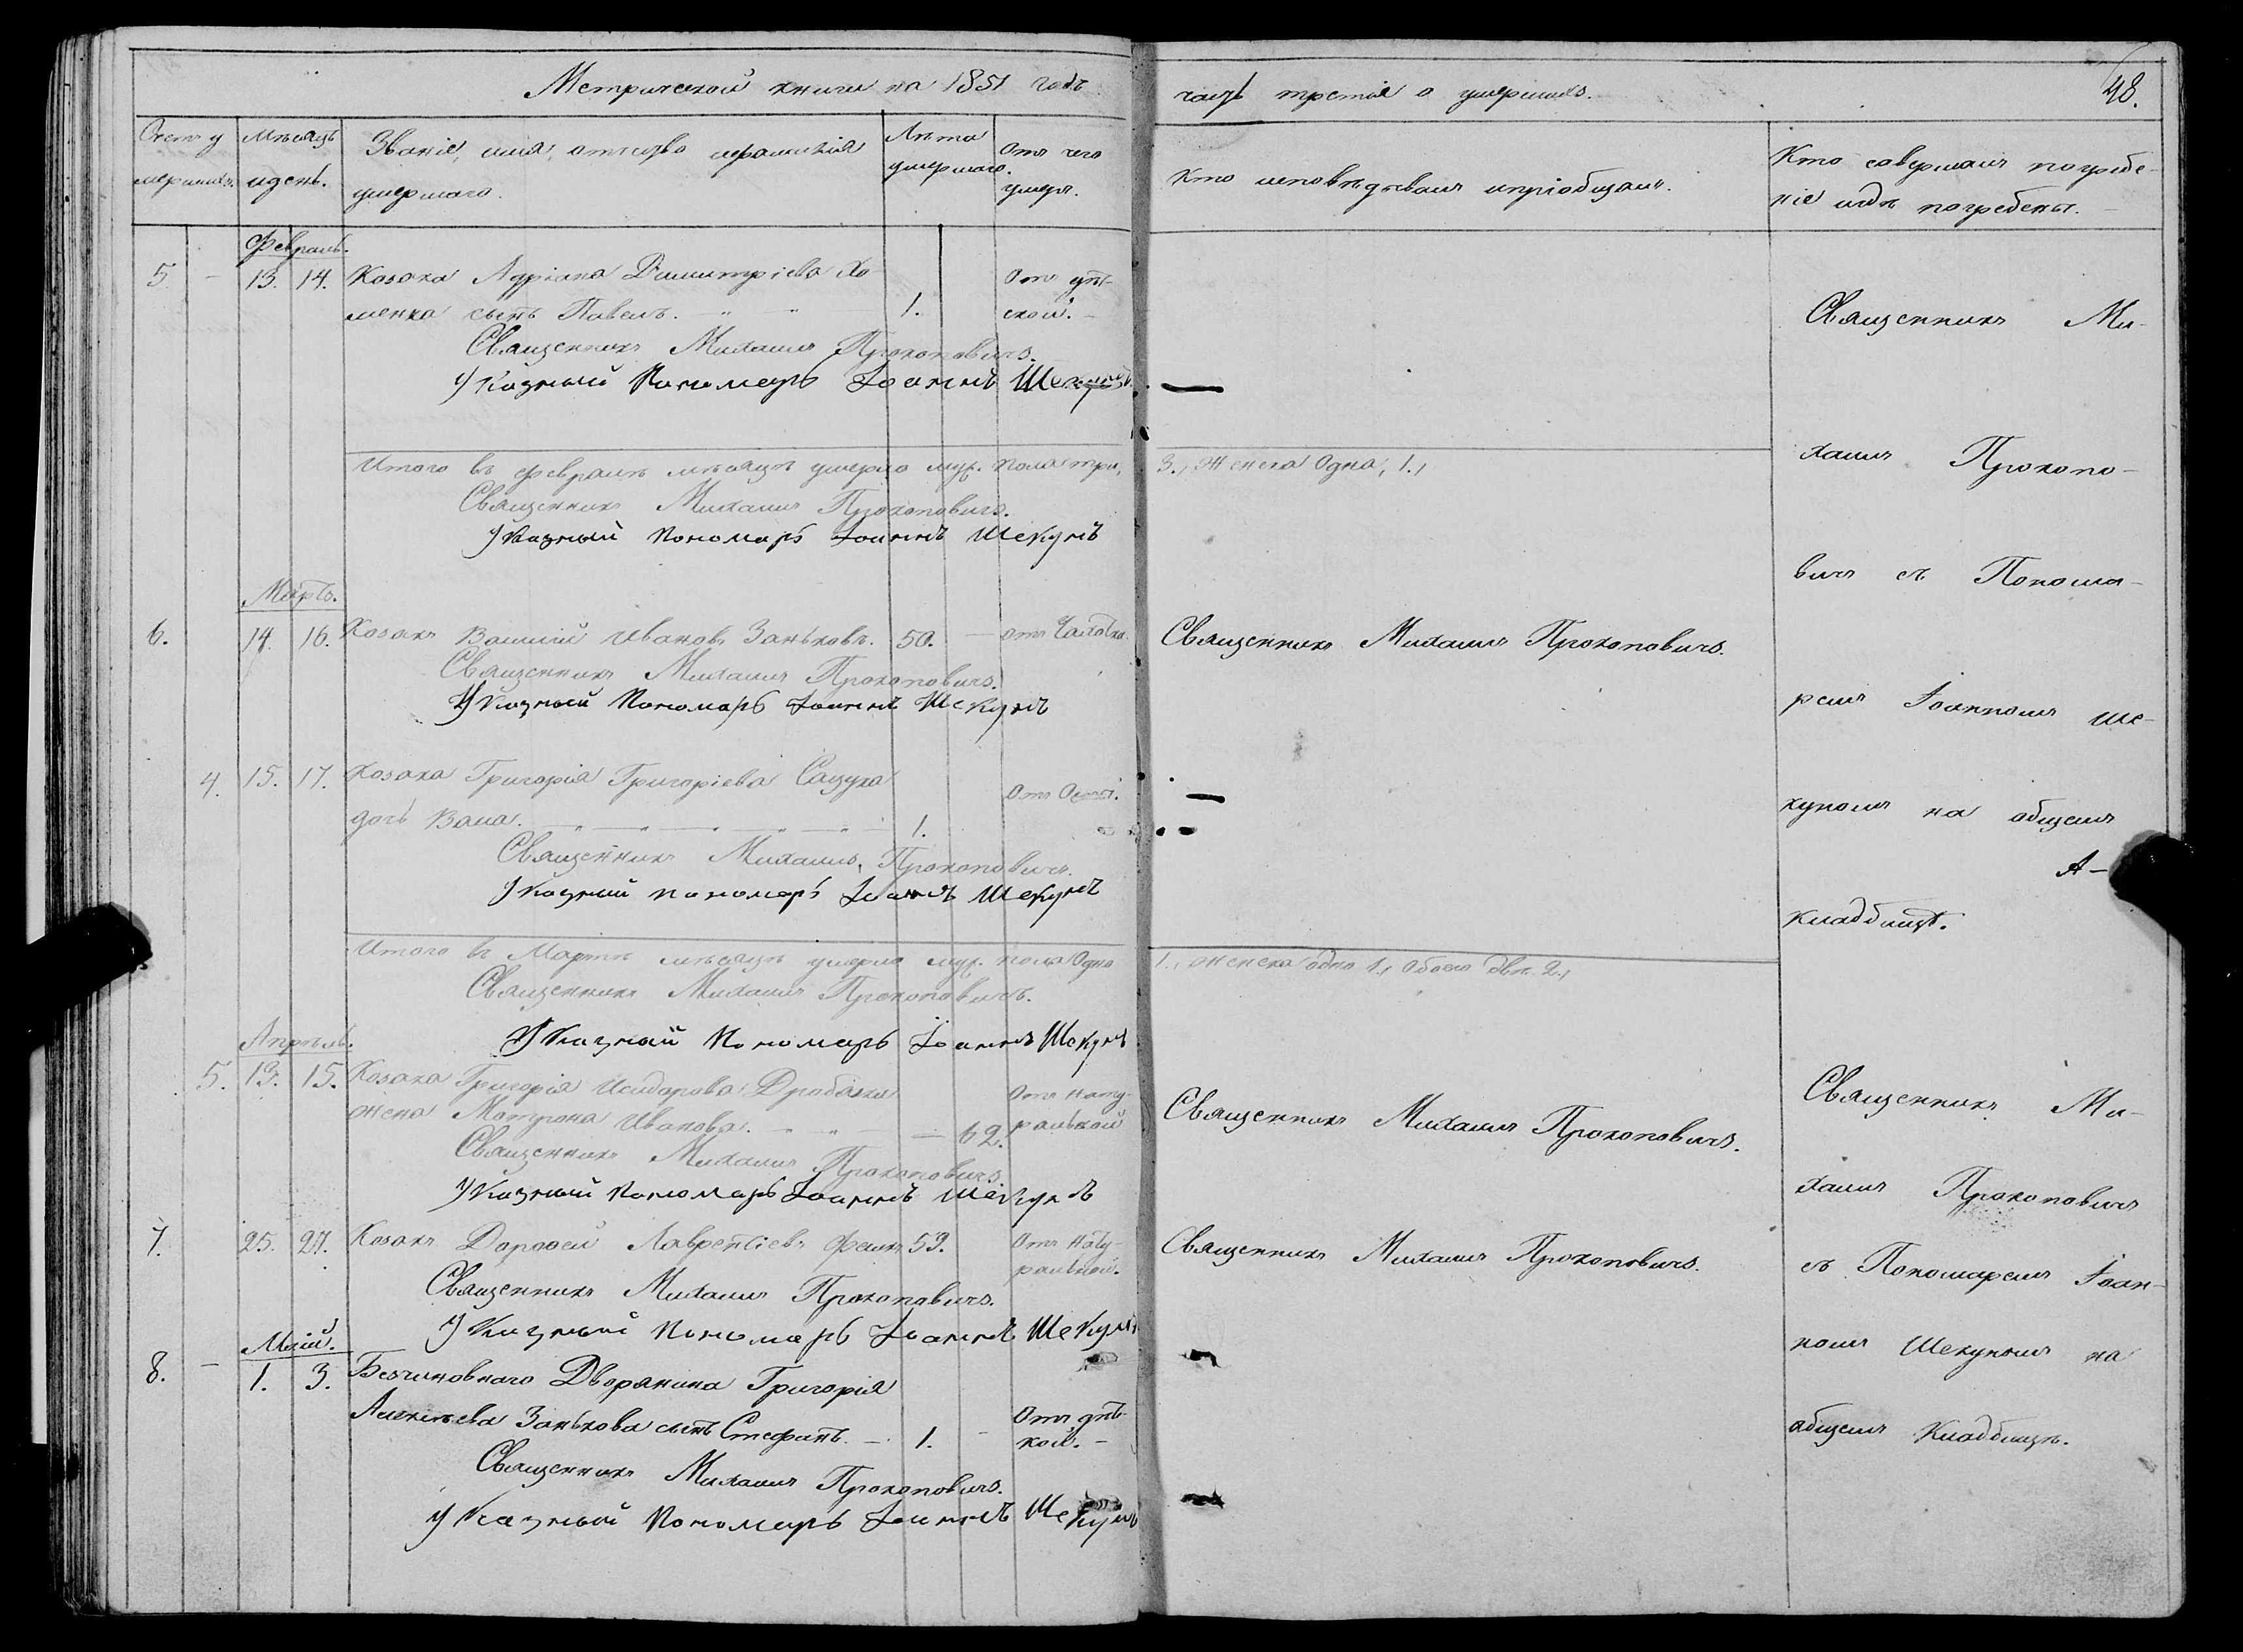 Метрической книги на 1851 годъ
часть третья о умершихъ.
48.
Счетъ у
мершихъ.
Мѣсяцъ
и день.
Званіе, имя, отчество и фамилія
умершаго.
Лѣта
умершаго.
Отъ чего
умеръ.
Кто исповѣдывалъ и пріобщалъ.
Кто совершалъ погребе-
ніе и гдѣ погребены.
Февраль.
5. - 13. 14. Козака Адріана Димитріева Хо-
менка сынъ Павелъ. 1.
Отъ
ской.
Священникъ Михаилъ Прокоповичъ.
Указный Пономарь Іоаннъ Шекунъ
Итого въ Февралѣ мѣсяцѣ умерло муж. пола три,
3., женска одна, 1.,
Священникъ Михаилъ Прокоповичъ.
Указный Пономарь Іоаннъ Шекунъ
Мартъ.
6. 14. 16. Козакъ Василій Ивановъ Заньковъ. 50. - отъ чахотки.
Священникъ Михаилъ Прокоповичъ.
Священникъ Михаилъ Прокоповичъ.
Указный Пономарь Іоаннъ Шекунъ
4. 15. 17. Козака Григорія Григоріева
дочь 1.
Отъ Оспы.
Священникъ Михаилъ Прокоповичъ.
Указный пономарь Іоаннъ Шекунъ
Итого въ Мартѣ мѣсяцѣ умерло муж. пола одно
1., женска одна 1., обоего двѣ 2.,
Священникъ Михаилъ Прокоповичъ.
Указный Пономарь Іоаннъ Шекунъ
Апрѣль.
5. 13. 15. Козака Григорія Исидорова
жена Матрона Иванова. - 62.
Отъ нату-
ральной
Священникъ Михаилъ Прокоповичъ.
Священникъ Михаилъ Прокоповичъ.
Указный пономарь Іоаннъ Шекунъ
7. 25. 27. Козакъ Дорофей Лаврентіевъ 53.
Отъ нату-
ральной.
Священникъ Михаилъ Прокоповичъ.
Священникъ Михаилъ Прокоповичъ.
Указный Пономарь Іоаннъ Шекунъ
Май.
8. - 1. 3. Безчиновнаго Дворянина Григорія
Алексѣева Занькова сынъ Стефанъ. - 1. -
Отъ дѣтс-
кой. -
Священникъ Михаилъ Прокоповичъ.
Указный Пономарь Іоаннъ Шекунъ
Священникъ Ми-
хаилъ Прокопо-
вичъ съ Понома-
ремъ Іоанномъ Ше-
куномъ на общемъ
А-
кладбищѣ.
Священникъ Ми-
хаилъ Прокоповичъ
съ Пономаремъ Іоан-
номъ Шекуномъ на
общемъ Кладбищѣ.